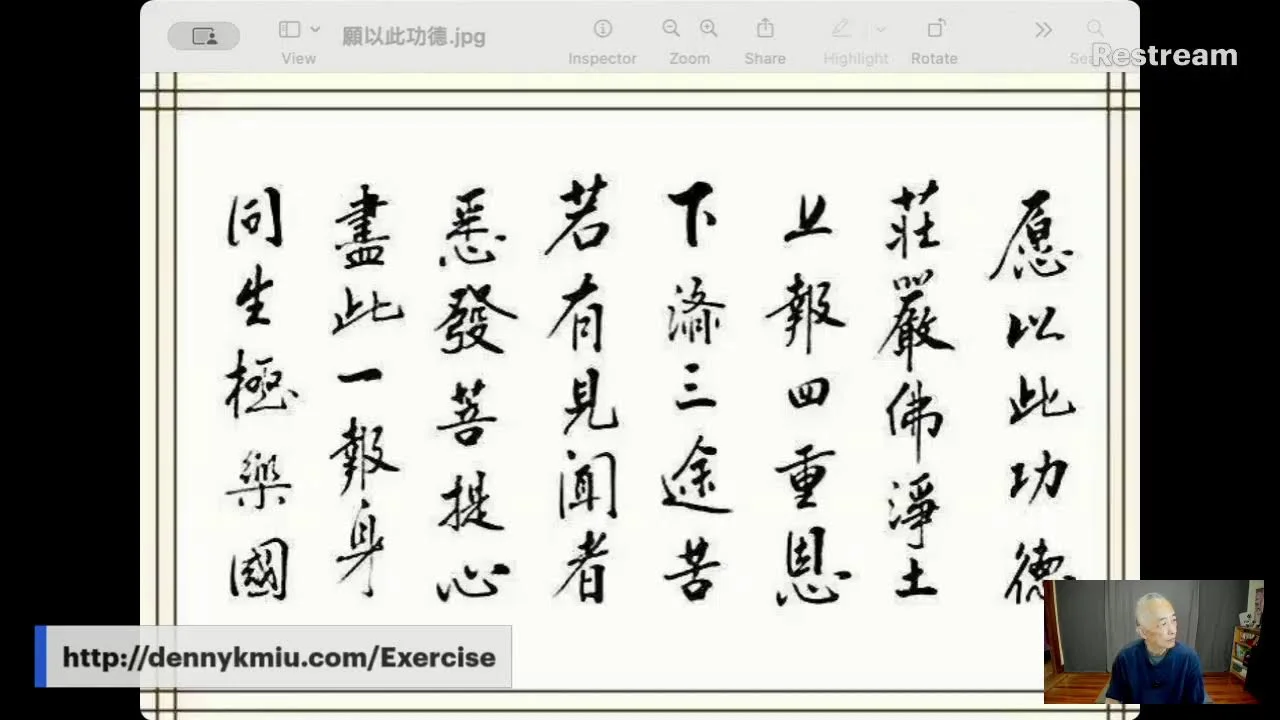 願以此功德.jpg
View
Inspector
Zoom
Share
Highlight
Rotate
Restream
愿以此功德
莊嚴佛淨土
上報四重恩
下滌三途苦
若有見聞者
悉發菩提心
盡此一報身
同生極樂國
http://dennykmiu.com/Exercise